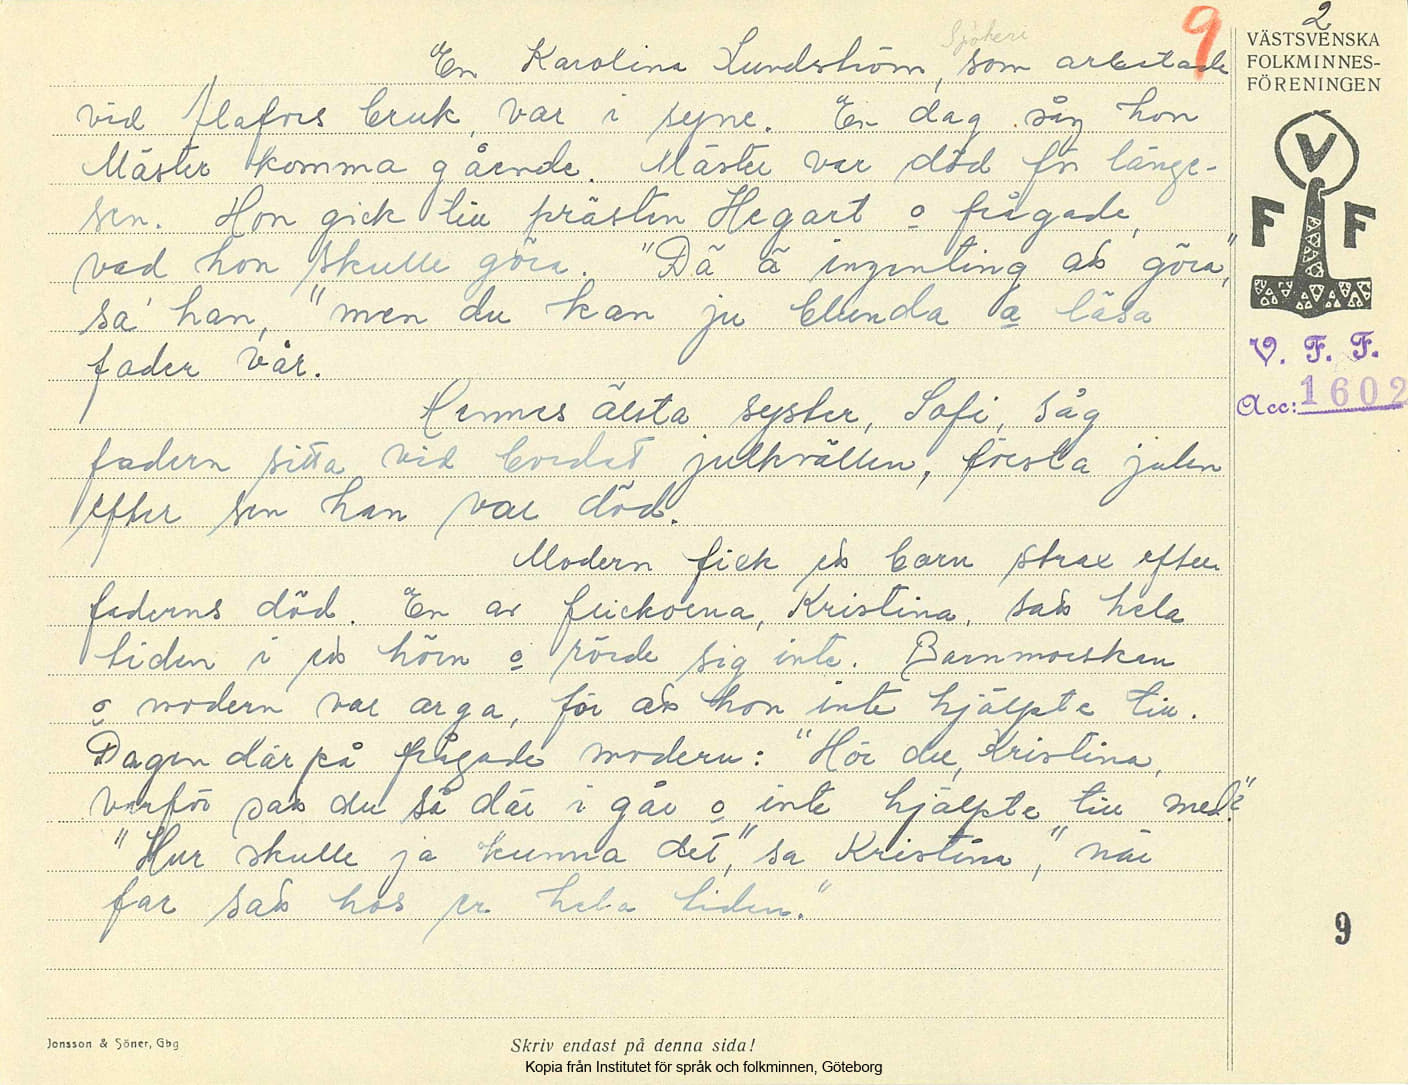 9
2
VÄSTSVENSKA
FOLKMINNES-
FÖRENINGEN
En Karolina Lundström, som arbetade
vid Alafors bruk, var i syne. En dag såg hon
Mäster komma gående. Mäster var död för länge-
sen. Hon gick till prästen Hegart o frågade,
vad hon skulle göra. "Dä ä ingenting att göra,"
sa' han, "men du kan ju blunda å läsa
fader vår.
Hennes älsta syster, Sofi, såg
fadern sitta vid bordet julkvällen, första julen
efter sen han var död.
Modern fick ett barn strax efter
faderns död. En av flickorna, Kristina, satt hela
tiden i ett hörn o rörde sig inte. Barnmorskan
o modern var arga, för att hon inte hjälpte till.
Dagen där på frågade modern: "Hör du, Kristina,
varför satt du så där i går o inte hjälpte till med?"
"Hur skulle ja kunna det," sa Kristina, "när
far satt hos er hela tiden."
V
F F
V. F. F.
Acc: 1602
9
Jonsson & Söner, Gbg
Skriv endast på denna sida!
Kopia från Institutet för språk och folkminnen, Göteborg